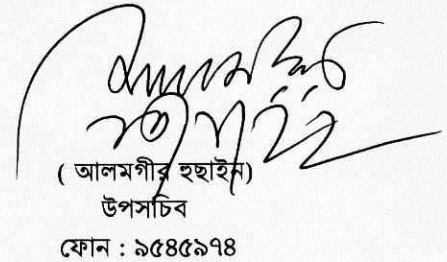 ( আলমগীর হুছাইন)
উপসচিব
ফোন : ৯৫৪৫৯৭৪